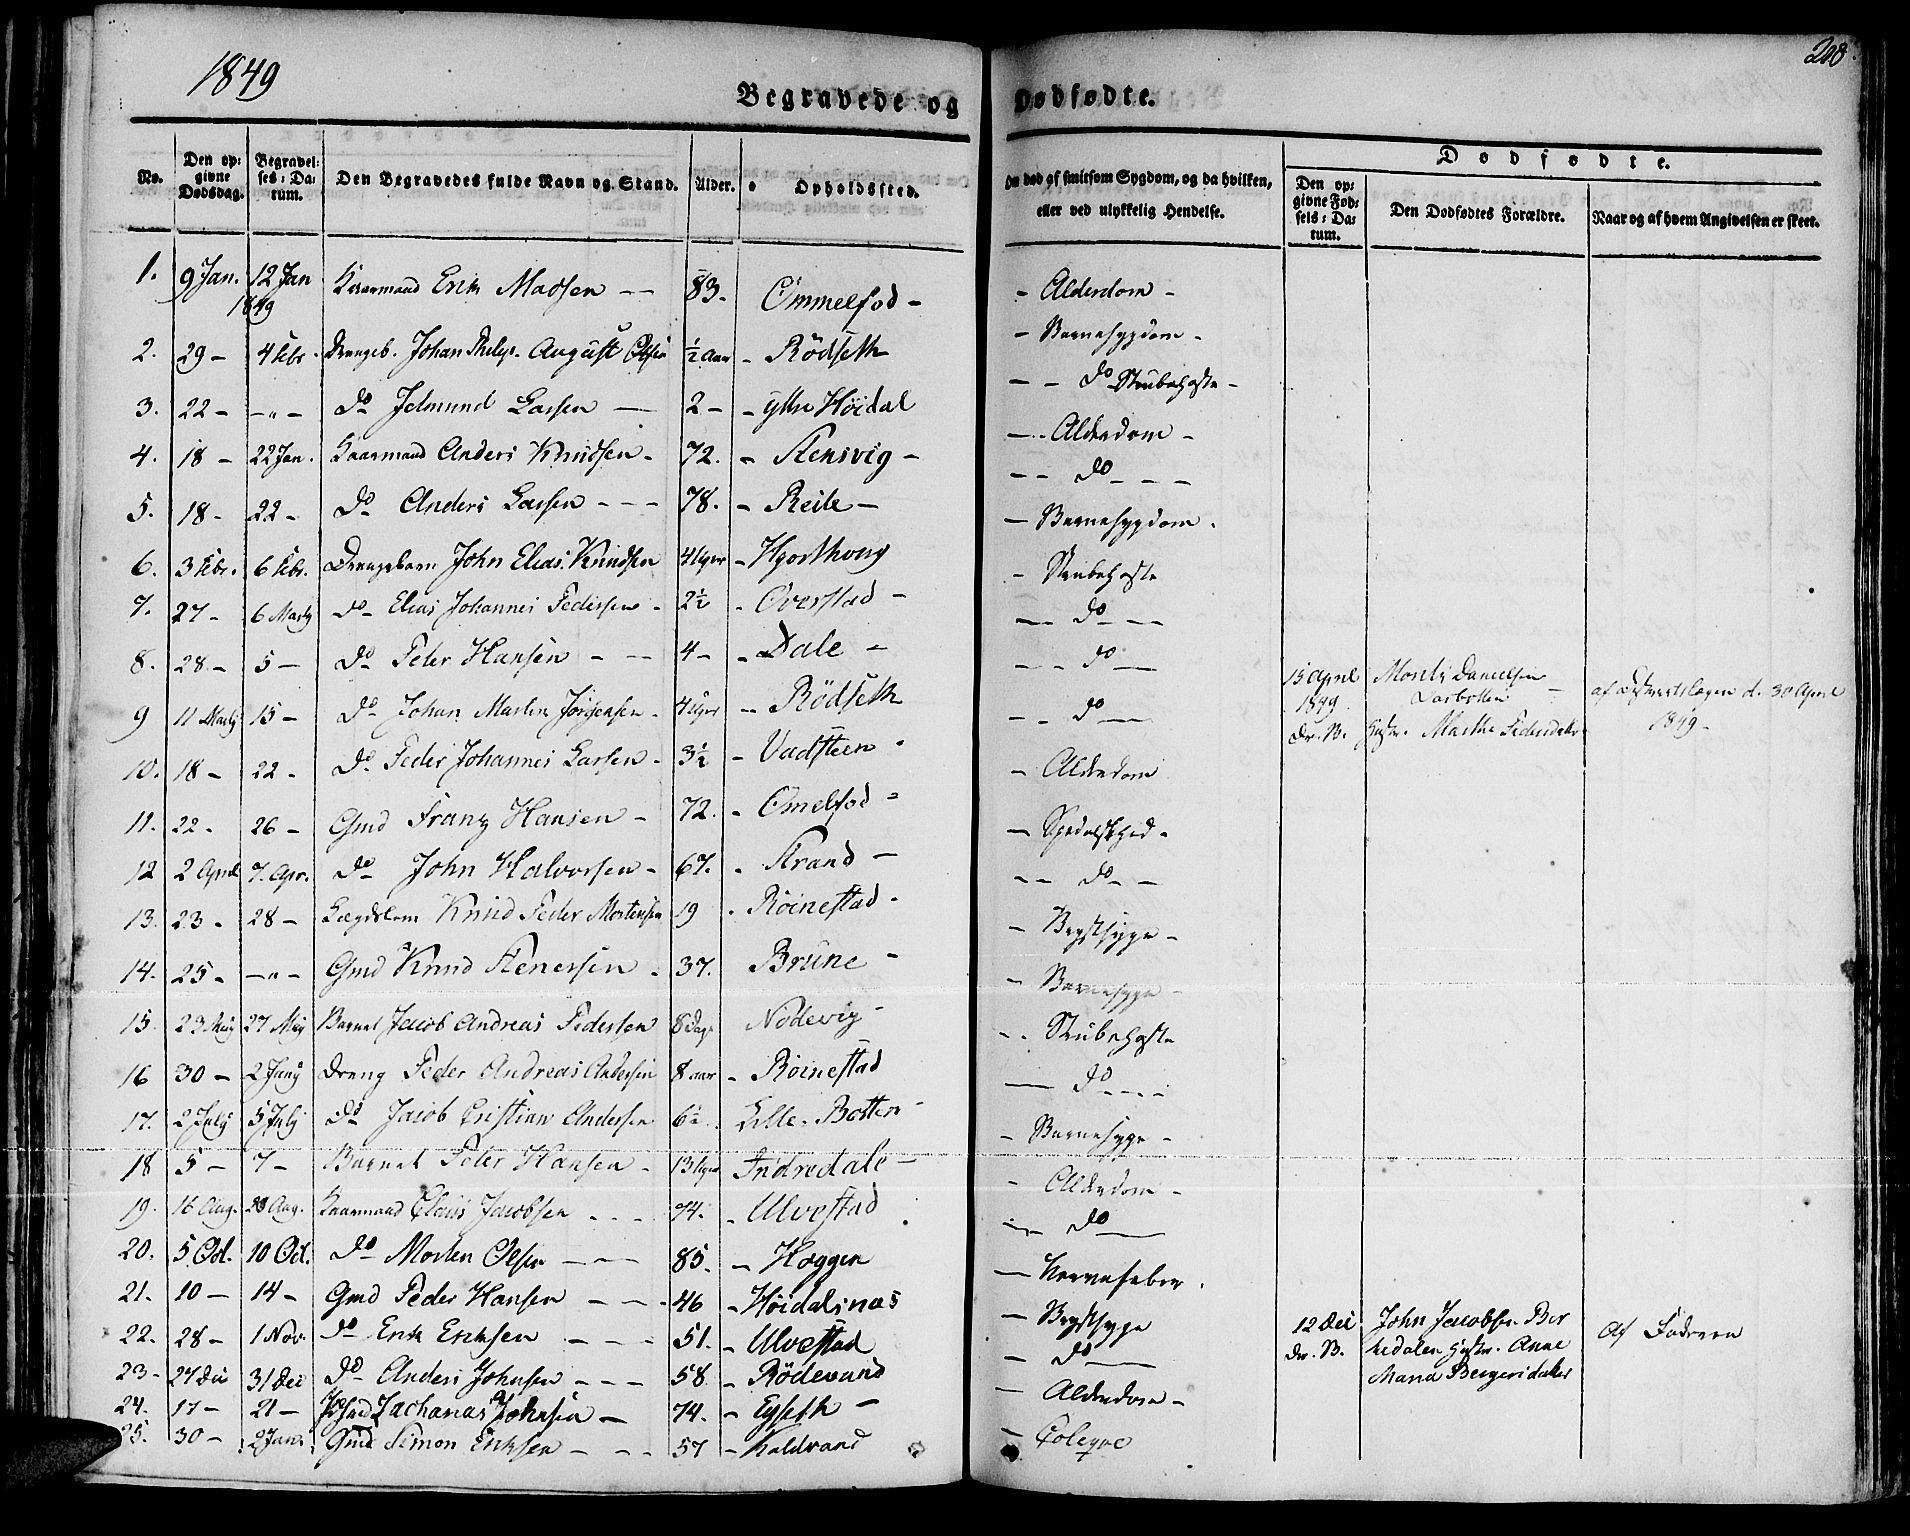 1849
208.
Begravede og Dødfødte.
No. Den opgivne Dødsdag. Begravelses-Datum. Den Begravedes fulde Navn og Stand. Alder. Opholdssted. Om død af smitsom Sygdom, og da hvilken, eller ved ulykkelig Hendelse.
Dødfødte.
Den opgivne Fødsels-Datum. Den Dødfødtes Forældre. Naar og af hvem Angivelsen er skeet.
1. 9 Jan. 12 Jan 1849 Kaarmand Erik Madsen — — 83. Ømmelfod - - Alderdom -
2. 29 - 4 Febr. Drengeb. Johan August Olsen ½ Aar - Rödseth - Barnesygdom -
3. 22 - -"- Do Lassen — 2 - - Höidal - - Do Strubehoste -
4. 18 - 22 Jan. Kaarmand Anders Knudsen - 72. - Stensvig - - Alderdom -
5. 18 - 22 - Do Anders Lassen - - - 78. - Reite - - - Do - - -
6. 3 Febr. 6 Febr. Drengebarn John Elias Knudsen 4 Uger - Hjorthoug - Barnesygdom.
7. 27 - 6 Marty Do Elias Johannes Pedersen - 2½ - Överstad - - Strubehoste
8. 28 - 5 - Do Peter Hansen - - 4 - - Dale - - - Do - -
9 11 Marty 15 - Do Johan Martin Jörgensen - 4 Uger - Rödseth - - Do —
10. 18 - 22 - Do Peder Johannes Larsen - 3½ - Vadsteen - - - Do —
11. 22 - 26 - Gmd Frantz Hansen - 72. - Ömelfod - - Alderdom
12 2 April 7. Apr. Do John Halvorsen - 67. - Strand - - Spedalskhed -
13. 23 - 28 - Lægdslem Knud Peder Mortensen 19 - Röinestad - - - Do - -
14. 25 - -"- Gmd Knud Stenersen - 37. Brune - - Brystsyge -
15. 23 May 27 May Barnet Jacob Andreas Pedersen 8 Dage Nödevig - - Barnesyge -
16 30 - 2 Juny Dreng Peder Andreas Andersen 8 aar - Röinestad - - Strubehoste
17. 2 July 5 July Do Jacob Cristian Andersen 6½ Lille-Botten - — Do - - -
18 5 - 7 - Barnet Peter Hansen - 13 Uger - Indredale - - Barnesyge -
19. 16 Aug. 20 Aug. Kaarmand Claus Jacobsen - - - 74. - Ulvestad - Alderdom -
20. 5 Oct. 10 Oct. Do Morten Olsen — - - 85. - Haggen - - Do —
21. 10 - 14 - Gmd Peder Hansen — - - 46 - Höidalsnæs — Nervefeber.
22. 28 - 1 Nov. Do Erik Eriksen - - - 51. - Ulvestad - Brystsyge
23 - 27 Dec 31 Dec Do Anders Johnsen - - - 58 - Rödevand - Do —
24. 17 - 21 - Zacharias Johnsen — 74. - Eyseth - - Alderdom -
25. 30 - 2 Jan. Gmd Simon Eriksen - - - 57 - Koldvand
15 April 1849 Dr. B. Danielsen Hustr. Marthe Pedersdatter af d. 30 April 1849 -
12 Dec Dr. B. John Jacobsen Hustr. Anne Maria Af Faderen